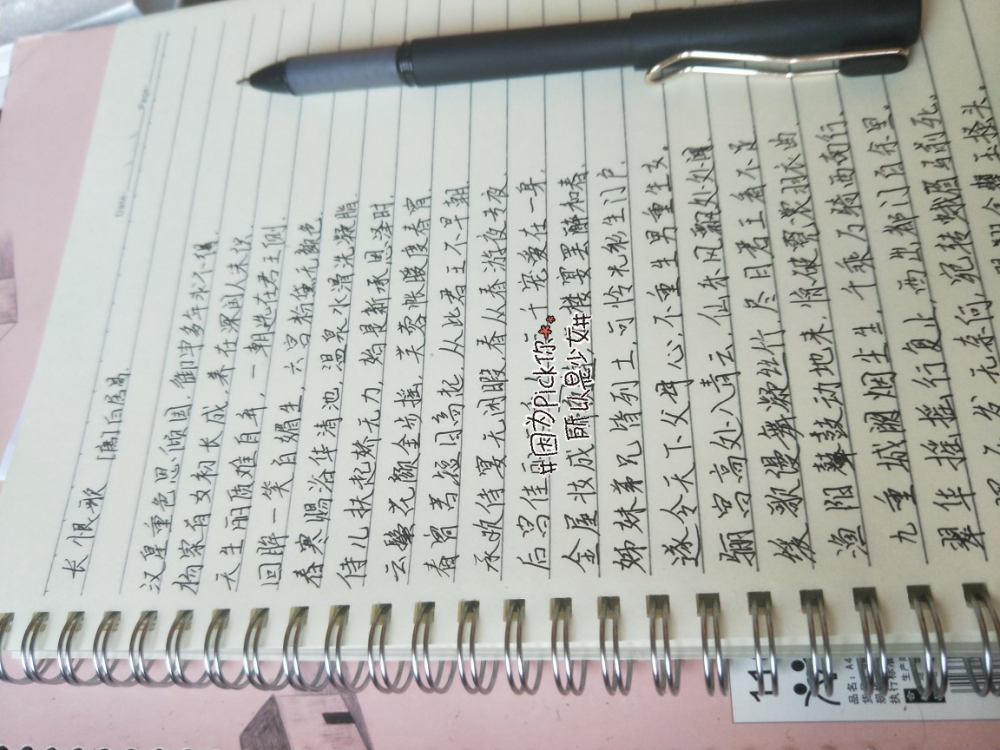 Date:
Page:
长恨歌 [唐]白居易
汉皇重色思倾国,御宇多年求不得
杨家有女初长成,养在深闺人未识
天生丽质难自弃,一朝选在君王侧
回眸一笑百媚生,六宫粉黛无颜色
春寒赐浴华清池,温泉水滑洗凝脂
侍儿扶起娇无力,始是新承恩泽时
云鬓花颜金步摇,芙蓉帐暖度春宵
春宵苦短日高起,从此君王不早朝
承欢侍宴无闲暇,春从春游夜专夜
后宫佳 三千宠爱在一身
金屋妆成 楼宴罢醉和春
姊妹弟兄皆列土,可怜光彩生门户
遂令天下父母心,不重生男重生女
骊宫高处入青云,仙乐风飘处处闻
缓歌慢舞凝丝竹,尽日君王看不足
渔阳鼙鼓动地来,惊破霓裳羽衣曲
九重城阙烟尘生,千乘万骑西南行
翠华摇摇行复止,西出都门百余里
六军不发无奈何,宛转蛾眉马前死
翠 玉搔头
#因为Pick你
师欧楷少女#
品名:
A4
执行标准
生产